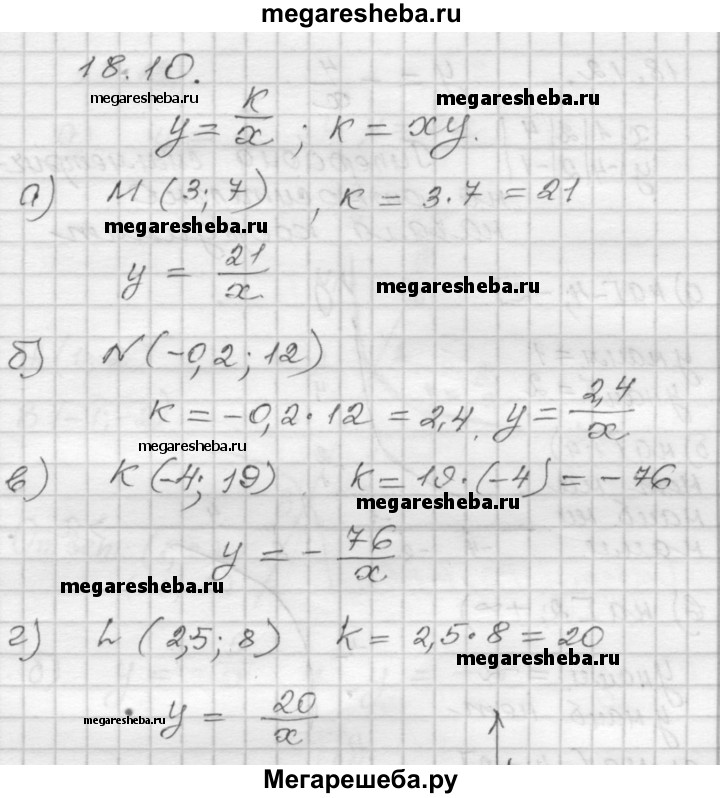 megaresheba.ru
18.10.
megaresheba.ru megaresheba.ru
y = k/x ; k = xy.
а) M (3; 7) , k = 3·7 = 21
megaresheba.ru
y = 21/x megaresheba.ru
б) N (-0,2; 12)
k = -0,2·12 = 2,4. y = 2,4/x
megaresheba.ru
в) K (-4; 19) k = 19·(-4) = -76
megaresheba.ru
y = - 76/x
megaresheba.ru
г) L (2,5; 8) k = 2,5·8 = 20
megaresheba.ru
megaresheba.ru y = 20/x
Мегарешеба.ру